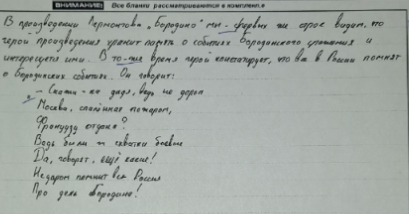 ВНИМАНИЕ! Все бланки рассматриваются в комплекте
В произведении Лермонтова „Бородино" мы с первых же строк видим, что
герои произведения хранит память о событиях Бородинского сражения и
интересуется ими. В то-же время герой констатирует, что вся в России помнят
о Бородинских событиях. Он говорит:
– Скажи-ка дядя, ведь не даром
Москва, спалённая пожаром,
Французу отдана?
Ведь были ж схватки боевые
Да, говорят, ещё какие!
Недаром помнит вся Россия
Про день Бородина!